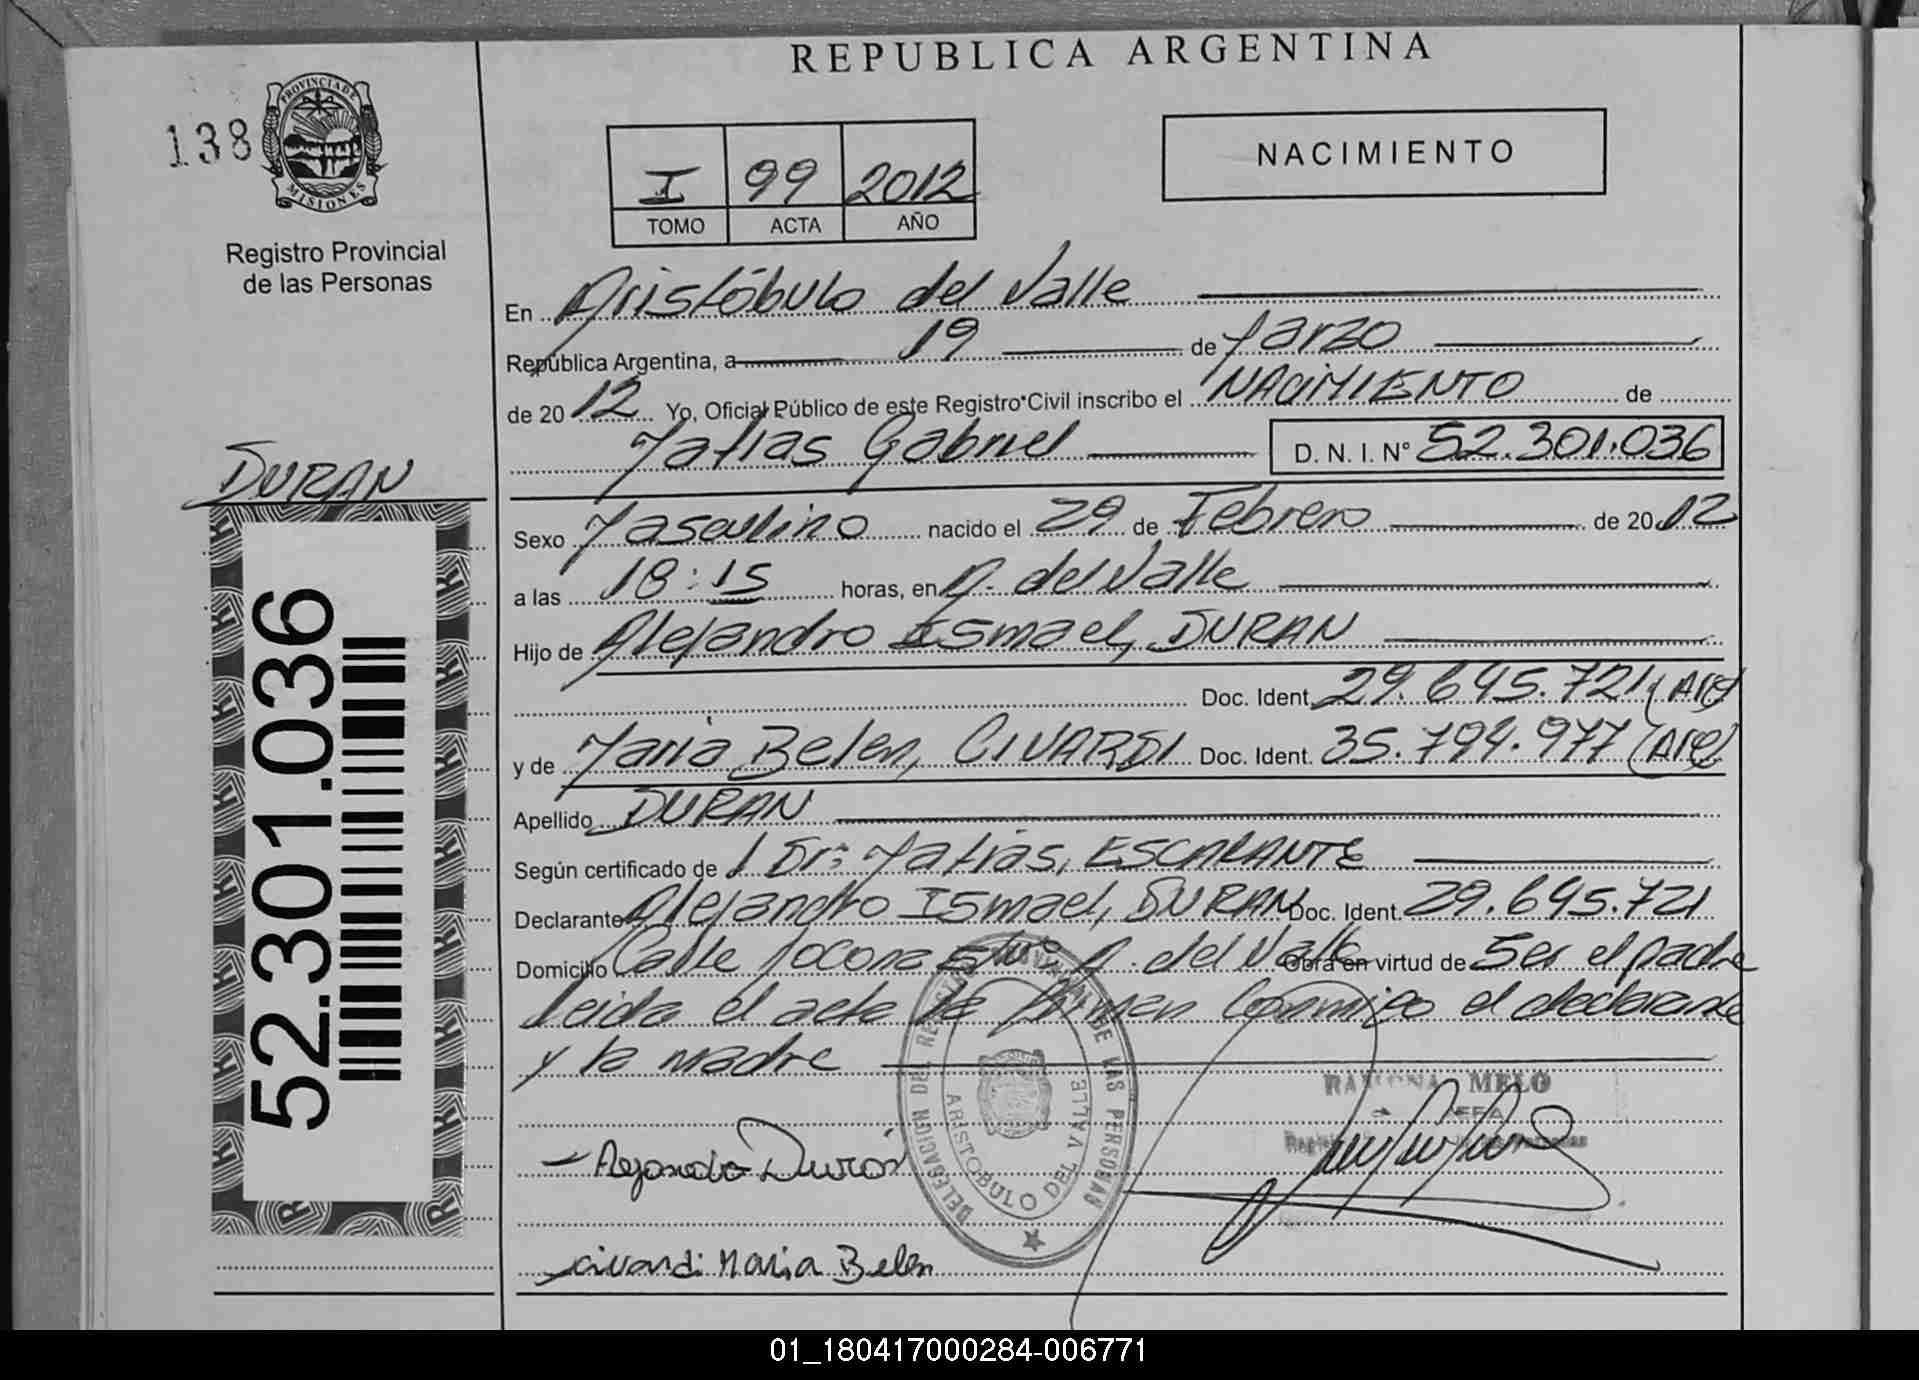 REPUBLICA ARGENTINA
138
PROVINCIA DE
MISIONES
Registro Provincial
de las Personas
I 99 2012
TOMO ACTA AÑO
NACIMIENTO
En Aristóbulo del Valle
República Argentina, a 19 de Marzo
de 2012 Yo, Oficial Público de este Registro Civil inscribo el NACIMIENTO de
Matias Gabriel D. N. I. Nº 52.301.036
DURAN
52.301.036
Sexo Masculino nacido el 29 de Febrero de 2012
a las 18:15 horas, en A. del Valle
Hijo de Alejandro Ismael, DURAN
Doc. Ident. 29.645.721 (Arg)
y de Maria Belen, CIVARDI Doc. Ident. 35.794.977 (Arg)
Apellido DURAN
Según certificado de / Dr: Matias, ESCALANTE
Declarante Alejandro Ismael, DURAN Doc. Ident. 29.645.721
Domicilio Calle A. del Valle Obra en virtud de Ser el padre
Leida el acta la firman Conmigo el declarante
y la madre
DELEGACION DEL REGISTRO PROVINCIAL DE LAS PERSONAS
ARISTOBULO DEL VALLE
RAMONA MELO
JEFA
Alejandro Duran
Civardi Maria Belen
01_180417000284-006771